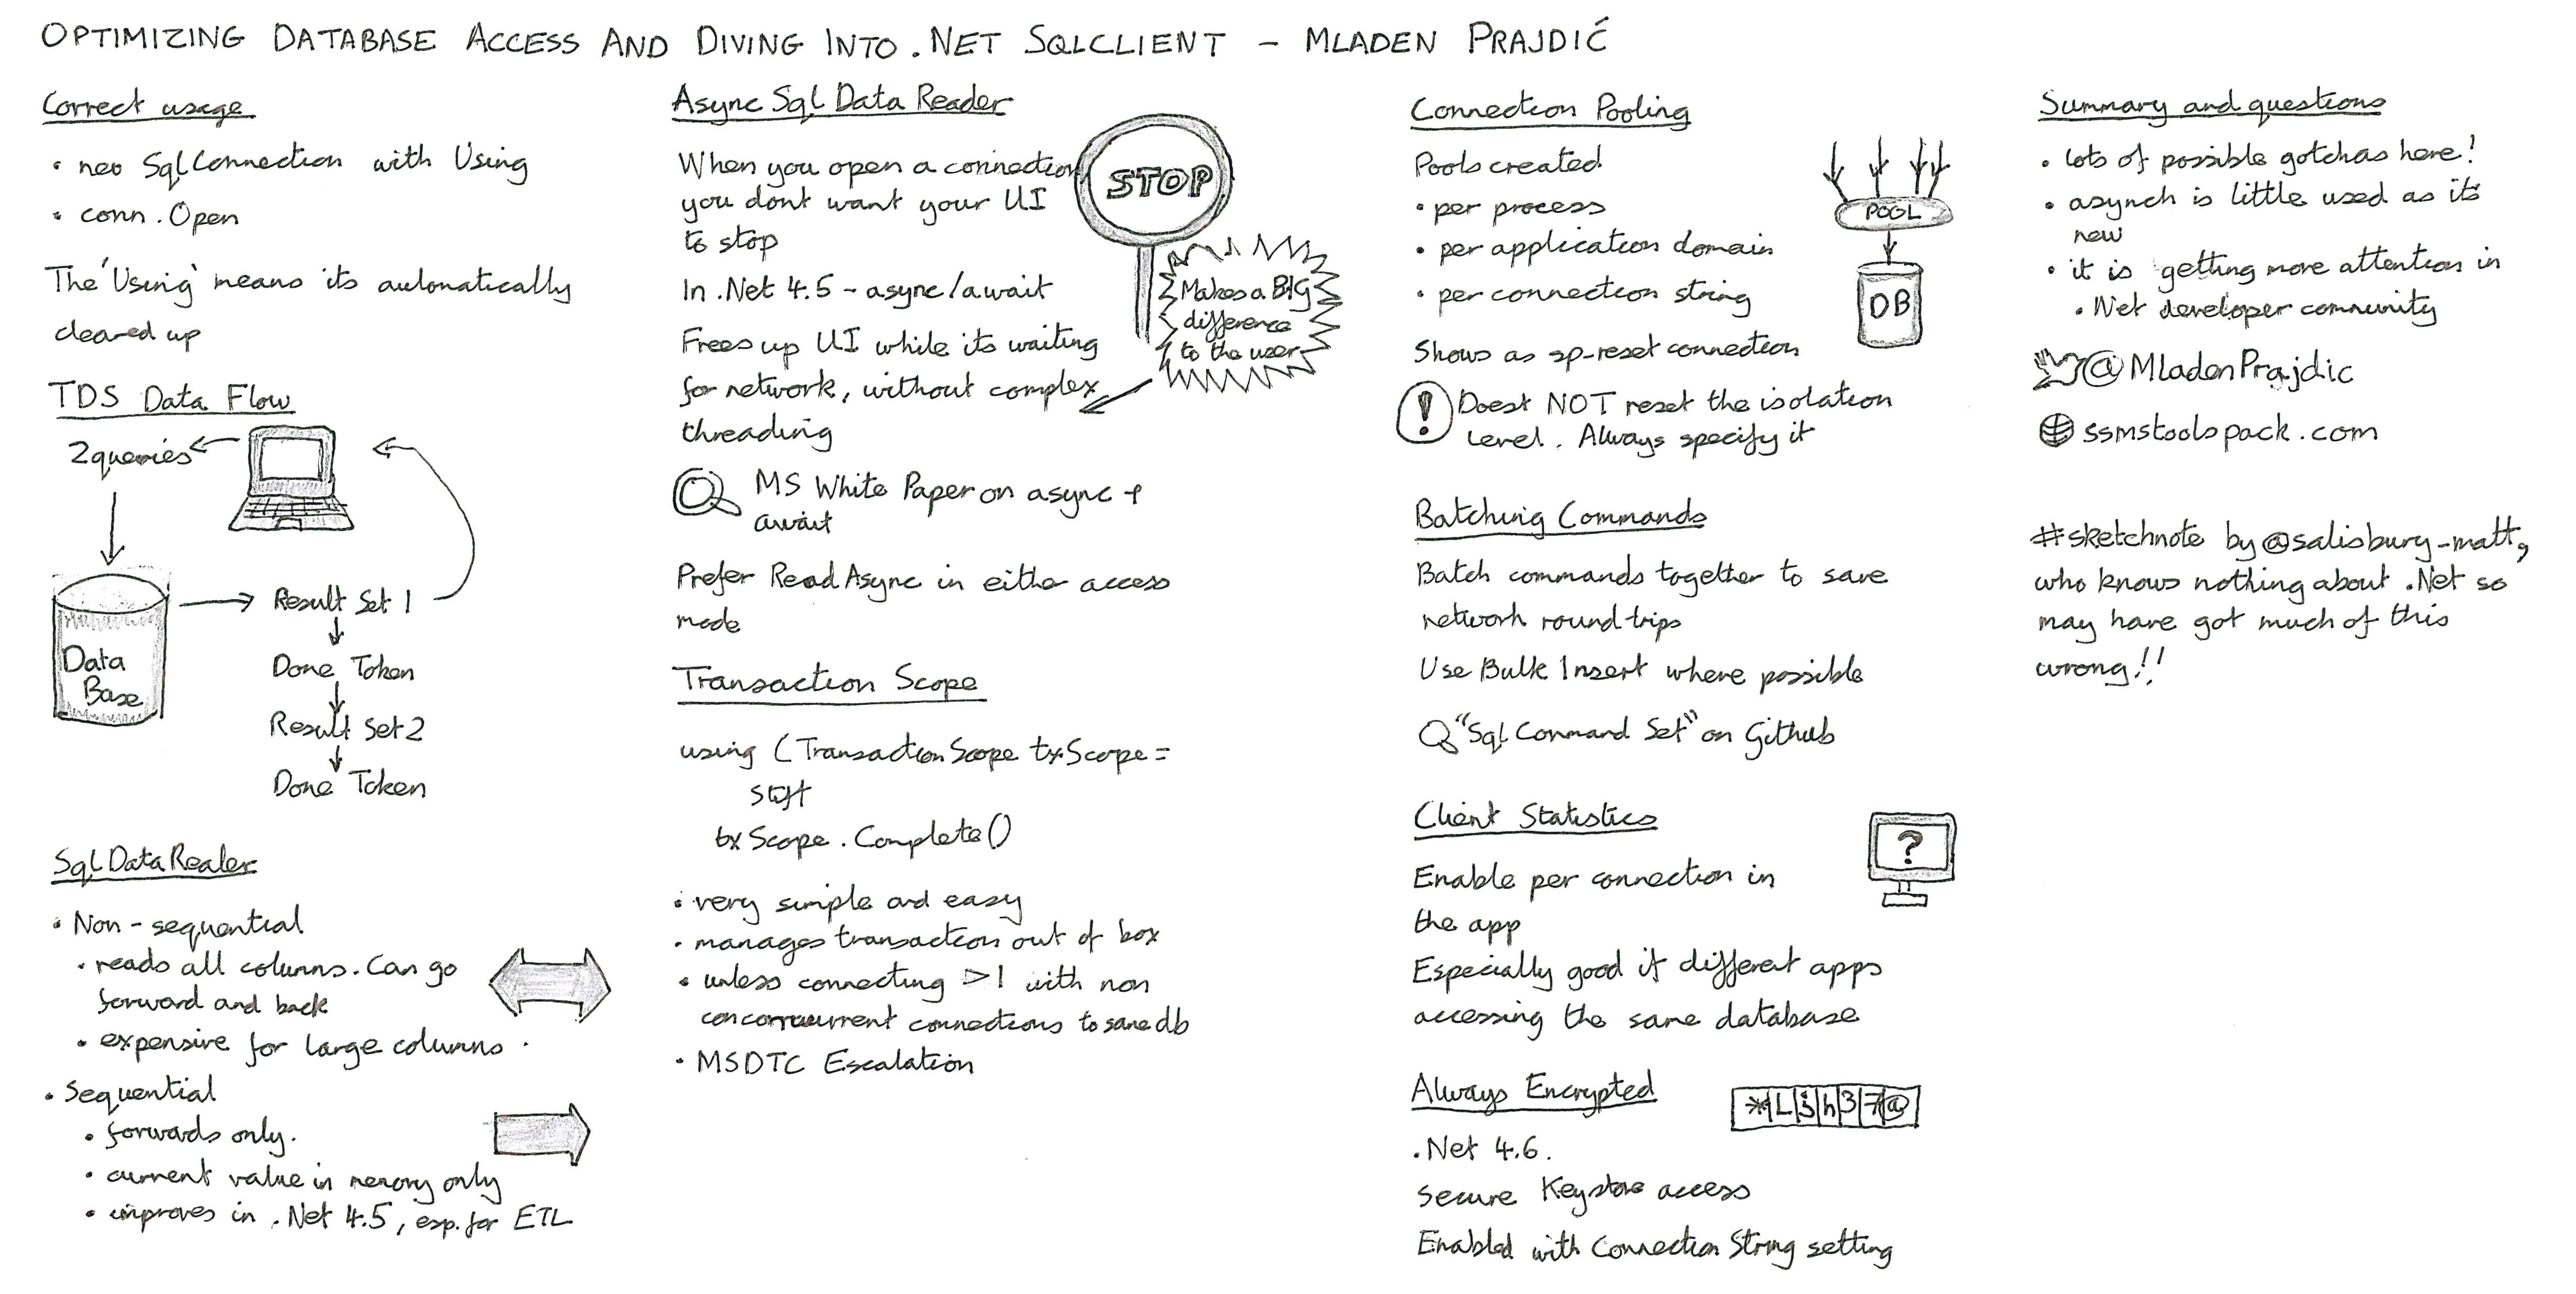 OPTIMIZING DATABASE ACCESS AND DIVING INTO .NET SQLCLIENT - MLADEN PRAJDIĆ
Correct usage
• new SqlConnection with Using
• conn.Open
The 'Using' means its automatically
cleared up
TDS Data Flow
2 queries
Data
Base
Result Set 1
Done Token
Result Set 2
Done Token
Sql Data Reader
• Non-sequential
• reads all columns. Can go
forward and back
• expensive for large columns.
• Sequential
• forwards only.
• current value in memory only
• improves in .Net 4.5, esp. for ETL
Async Sql Data Reader
When you open a connection
you dont want your UI
to stop
STOP
In .Net 4.5 - async/await
Makes a BIG
difference
to the user
Frees up UI while its waiting
for network, without complex
threading
MS White Paper on async +
await
Prefer Read Async in either access
mode
Transaction Scope
using (TransactionScope txScope =
stuff
txScope.Complete()
• very simple and easy
• manages transaction out of box
• unless connecting >1 with non
connections to same db
• MSDTC Escalation
Connection Pooling
Pools created
• per process
• per application domain
• per connection string
POOL
DB
Shows as sp-reset connection
! Doest NOT reset the isolation
level. Always specify it
Batching Commands
Batch commands together to save
network round trips
Use Bulk Insert where possible
"Sql Command Set" on Github
Client Statistics
?
Enable per connection in
the app
Especially good if different apps
accessing the same database
Always Encrypted
.Net 4.6.
Secure Keystore access
Enabled with Connection String setting
Summary and questions
• lots of possible gotchas here!
• asynch is little used as its
new
• it is getting more attention in
.Net developer community
@MladenPrajdic
ssmstoolspack.com
#sketchnote by @salisbury-matt,
who knows nothing about .Net so
may have got much of this
wrong!!